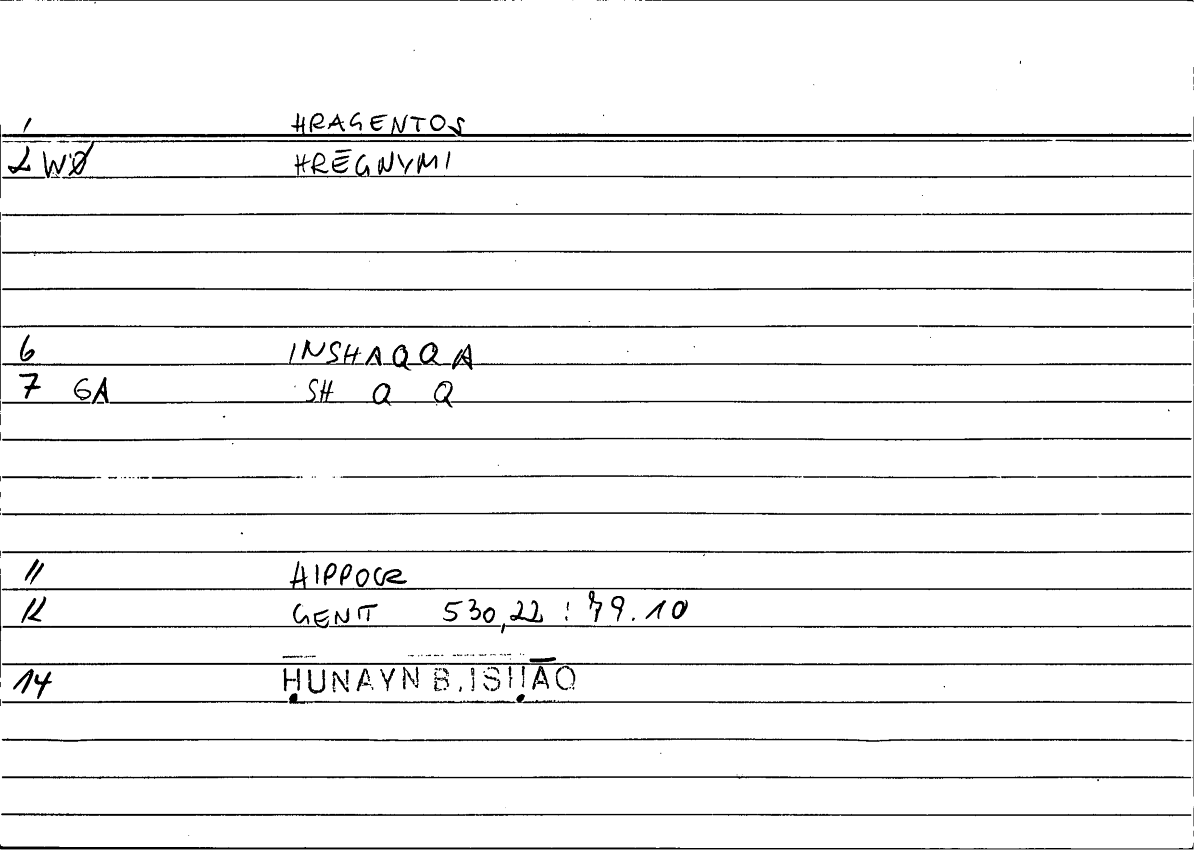 1 HRAGENTOS
2 WØ HRĒGNYMI
6 INSHAQQA
7 GA SH Q Q
11 HIPPOCR
12 GENIT 530,22 : 79.10
14 ḤUNAYN B. ISḤĀQ